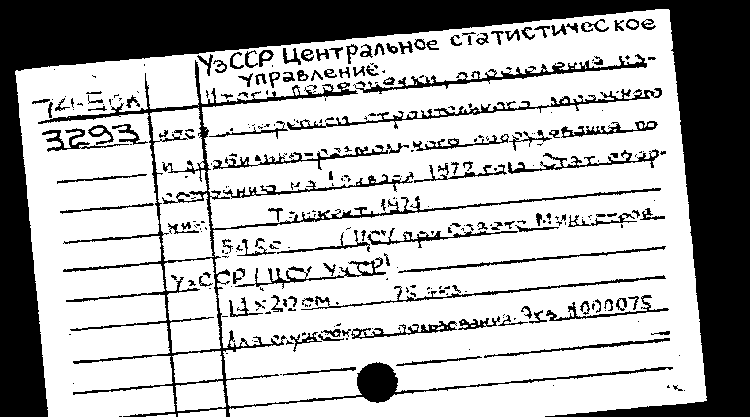 УзССР Центральное статистическое
управление.
74-5сл Итоги переоценки, определения из-
3293 носа и переписи строительного, дорожного
и дробильно-размольного оборудования по
состоянию на 1 января 1972 года. Стат. сбор-
ник. Ташкент, 1974.
545с. (ЦСУ при Совете Министров
УзССР (ЦСУ УзССР)
14×20см. 75 экз.
Для служебного пользования. Экз. №000075